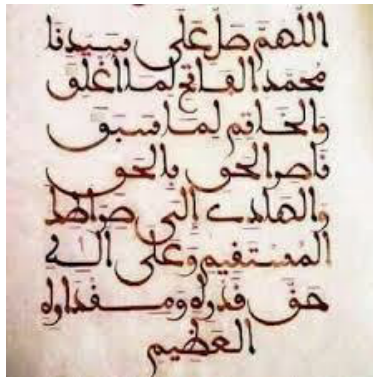 اللهم صل على سيدنا
محمد الفاتح لما اغلق
والخاتم لما سبق
ناصر الحق بالحق
والهادي الى صراطك
المستقيم وعلى اله
حق قدره ومقداره
العظيم